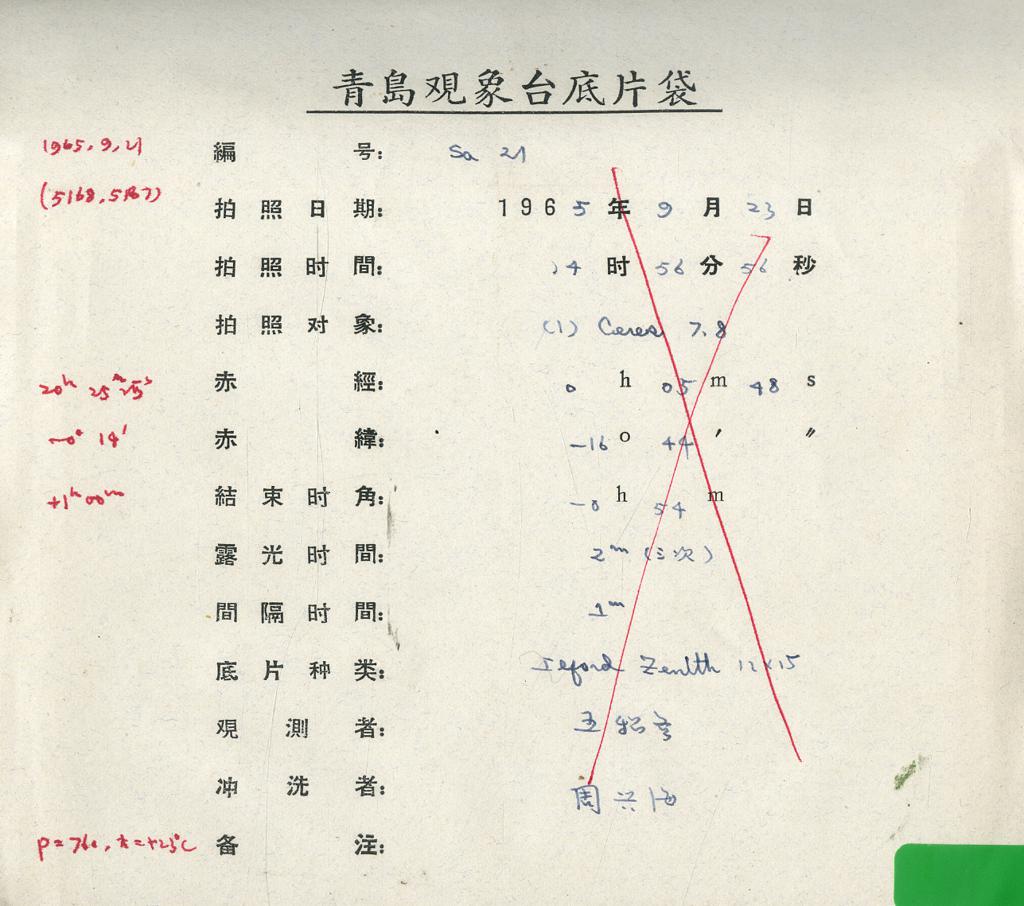 青島观象台底片袋
1965.9.21 編号: Sa 21
(5168, 5187) 拍照日期: 1965年9月23日
拍照时間: 14时56分56秒
拍照对象: (1) Ceres 7.8
20h 25m 25s 赤經: 0h 05m 48s
-0° 14′ 赤緯: -16° 44′ ″
+1h 00m 結束时角: -0h 54m
露光时間: 2m (三次)
間隔时間: 1m
底片种类: Ilford Zenith 12×15
观測者:
冲洗者: 周兴海
p=760, t=+23°C 备注: